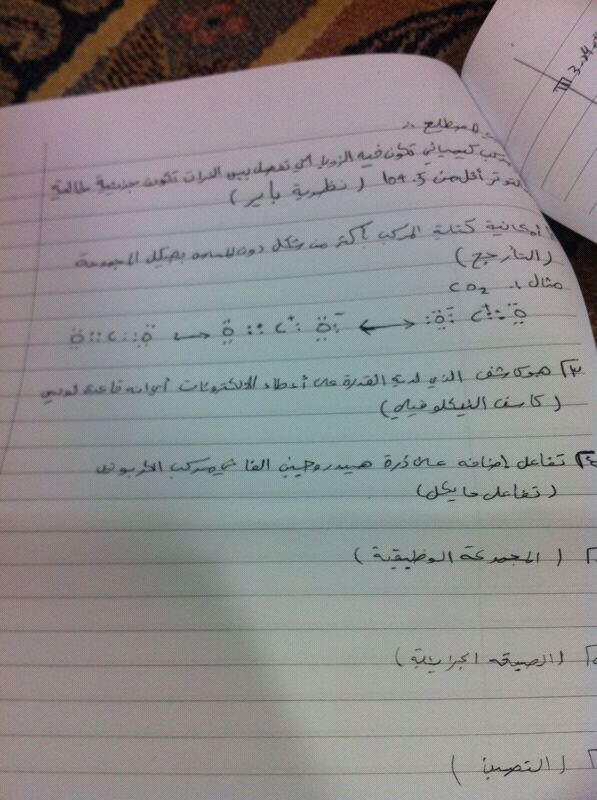 المصطلح :
مركب كيميائي تكون فيه الزوايا التي تفصل بين الذرات تكون جزيئية طالعة
التوتر أقل من 104.5 ( نظرية باير )
إمكانية كتابة المركب بأكثر من شكل دون المساس بهيكل المجموعة
( التأرجح )
مثال :. CO2
Ö::C::Ö ⟷ Ö::C⁺:Ö:⁻ ⟷ :Ö:⁻ C⁺::Ö
٣ هو كاشف الذي لديه القدرة على أعطاء الالكترونات أي انه قاعدة لويس
( كاشف النيكلوفيلي )
٤ تفاعل إضافه على ذرة هيدروجين الفا في مركب الكربونيل
( تفاعل مايكل )
( المجموعة الوظيفية )
( الصيغه الجزائية )
( التصبن )
III-3-